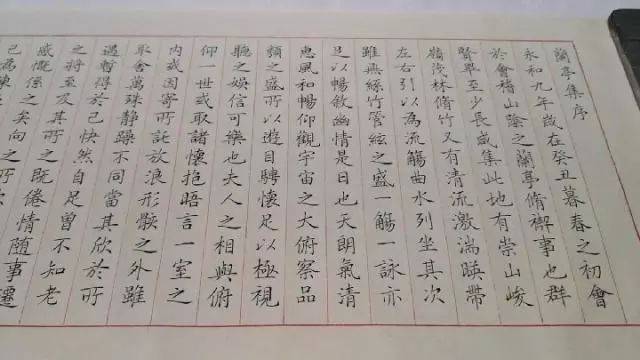 蘭亭集序
永和九年歲在癸丑暮春之初會
於會稽山陰之蘭亭脩禊事也群
賢畢至少長咸集此地有崇山峻
嶺茂林脩竹又有清流激湍暎帶
左右引以為流觴曲水列坐其次
雖無絲竹管絃之盛一觴一詠亦
足以暢敘幽情是日也天朗氣清
惠風和暢仰觀宇宙之大俯察品
類之盛所以遊目騁懷足以極視
聽之娛信可樂也夫人之相與俯
仰一世或取諸懷抱晤言一室之
內或因寄所託放浪形骸之外雖
取舍萬殊靜躁不同當其欣於所
遇暫得於己快然自足曾不知老
之將至及其所之既倦情隨事遷
感慨係之矣向之所
已為陳